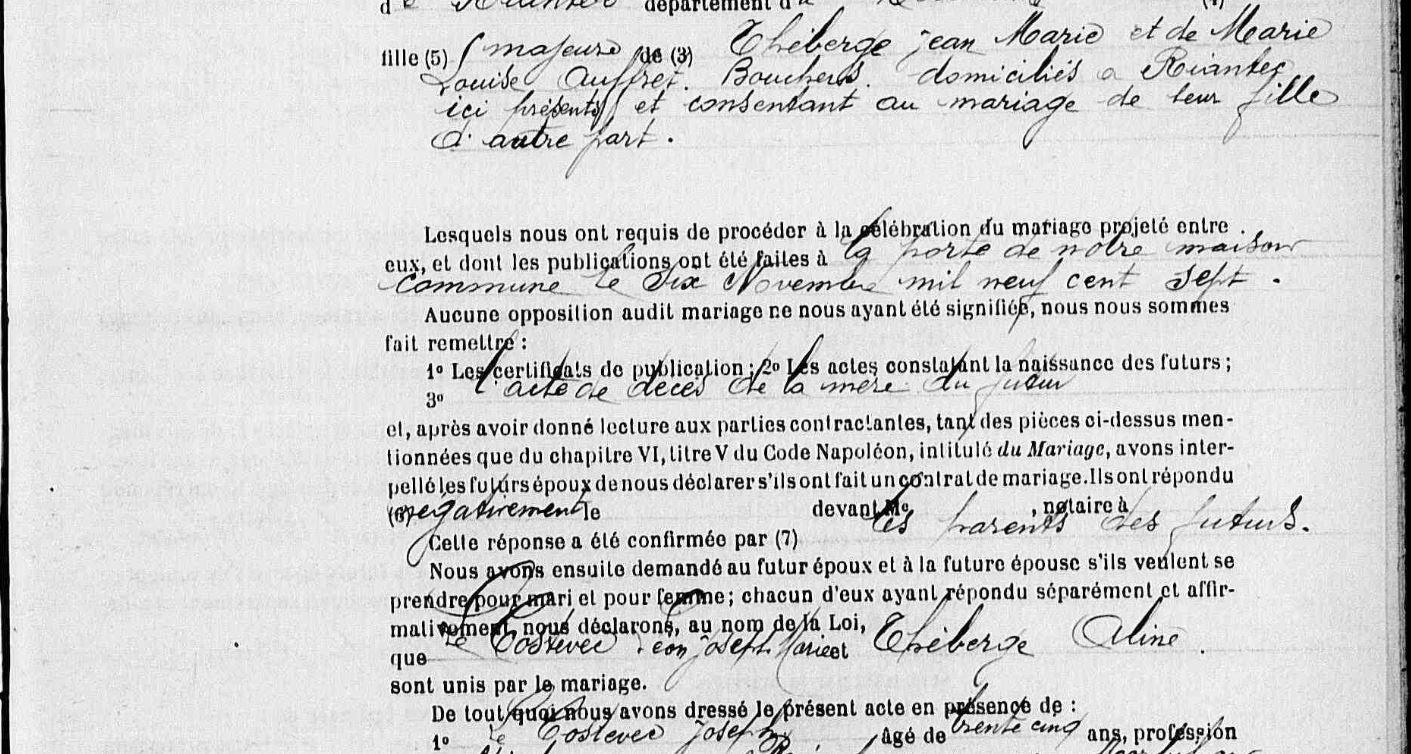 de Riantec département d
fille (5) majeure de (3) Théberge jean Marie et de Marie
Louise Auffret. Bouchers. domiciliés a Riantec
ici présents et consentant au mariage de leur fille
D'autre part.
Lesquels nous ont requis de procéder à la célébration du mariage projeté entre
eux, et dont les publications ont été faites à la porte de notre maison
Commune le Six Novembre mil neuf cent Sept.
Aucune opposition audit mariage ne nous ayant été signifiée, nous nous sommes
fait remettre :
1º Les certificats de publication ; 2º Les actes constatant la naissance des futurs ;
3º l'acte de décès de la mère du futur
et, après avoir donné lecture aux parties contractantes, tant des pièces ci-dessus men-
tionnées que du chapitre VI, titre V du Code Napoléon, intitulé du Mariage, avons inter-
pellé les futurs époux de nous déclarer s'ils ont fait un contrat de mariage. Ils ont répondu
(6) négativement le devant Me , notaire à
Cette réponse a été confirmée par (7) les parents des futurs.
Nous avons ensuite demandé au futur époux et à la future épouse s'ils veulent se
prendre pour mari et pour femme ; chacun d'eux ayant répondu séparément et affir-
mativement, nous déclarons, au nom de la Loi,
que Le Costevec Léon Joseph Marie et Théberge Aline.
sont unis par le mariage.
De tout quoi nous avons dressé le présent acte en présence de :
1º Le Costevec Joseph âgé de trente cinq ans, profession